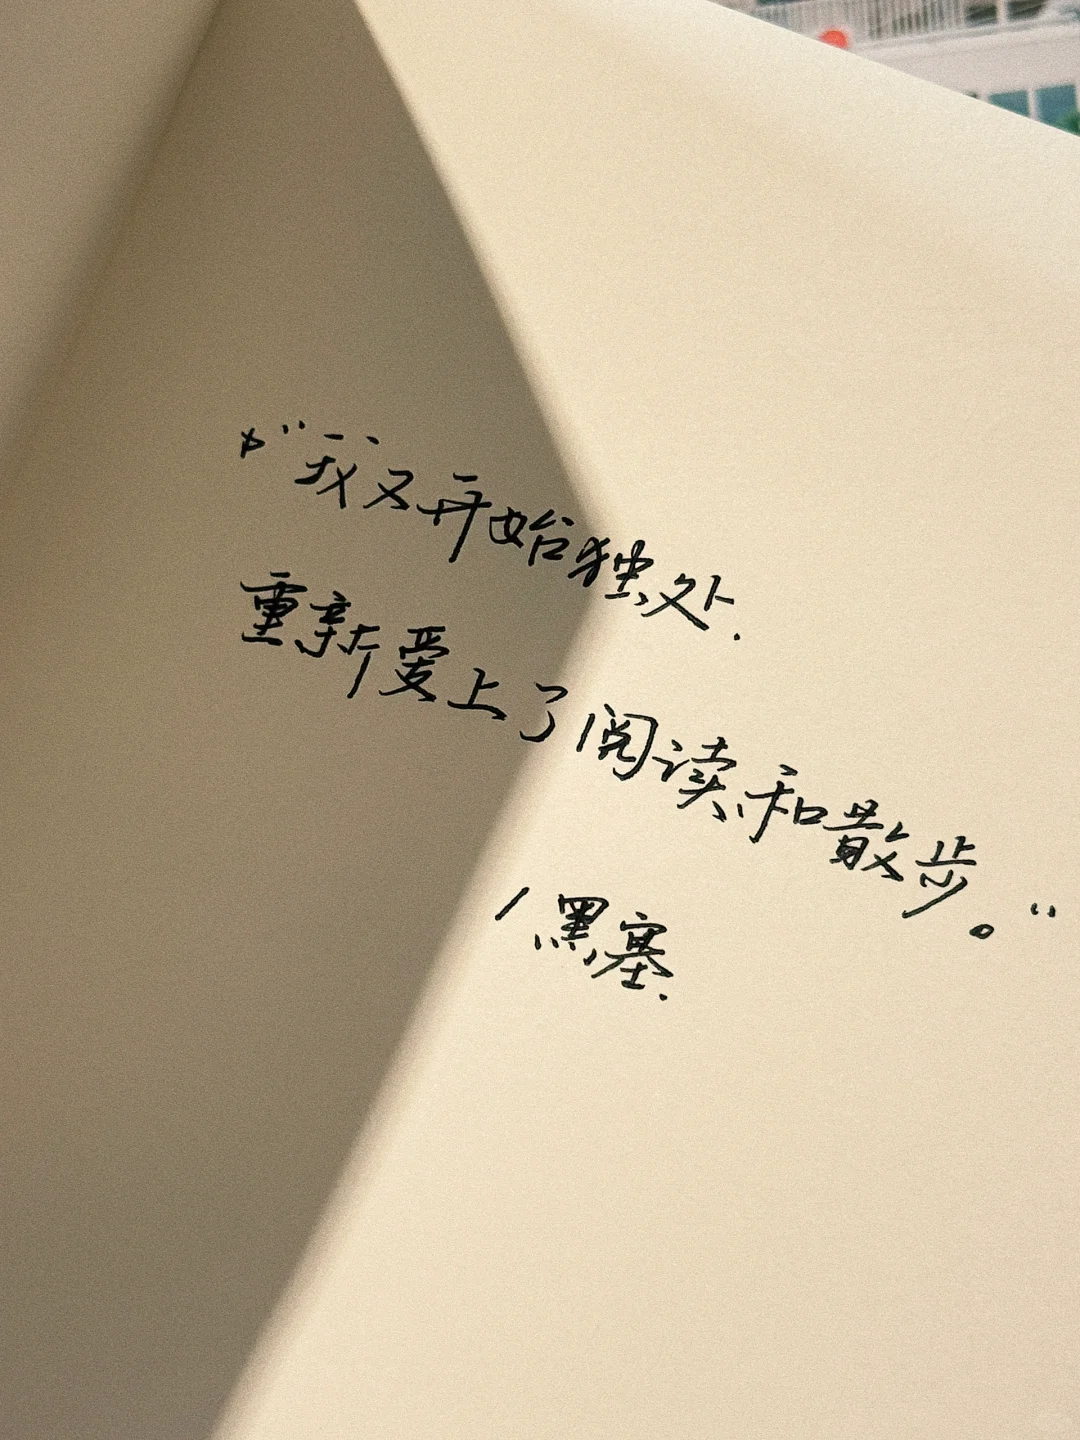 “我又开始独处.
重新爱上了阅读和散步。”
/黑塞.